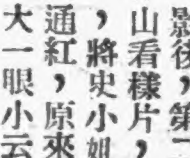 影後，第
山看樣片，
，將史小姐
通紅，原來
大一眼小云